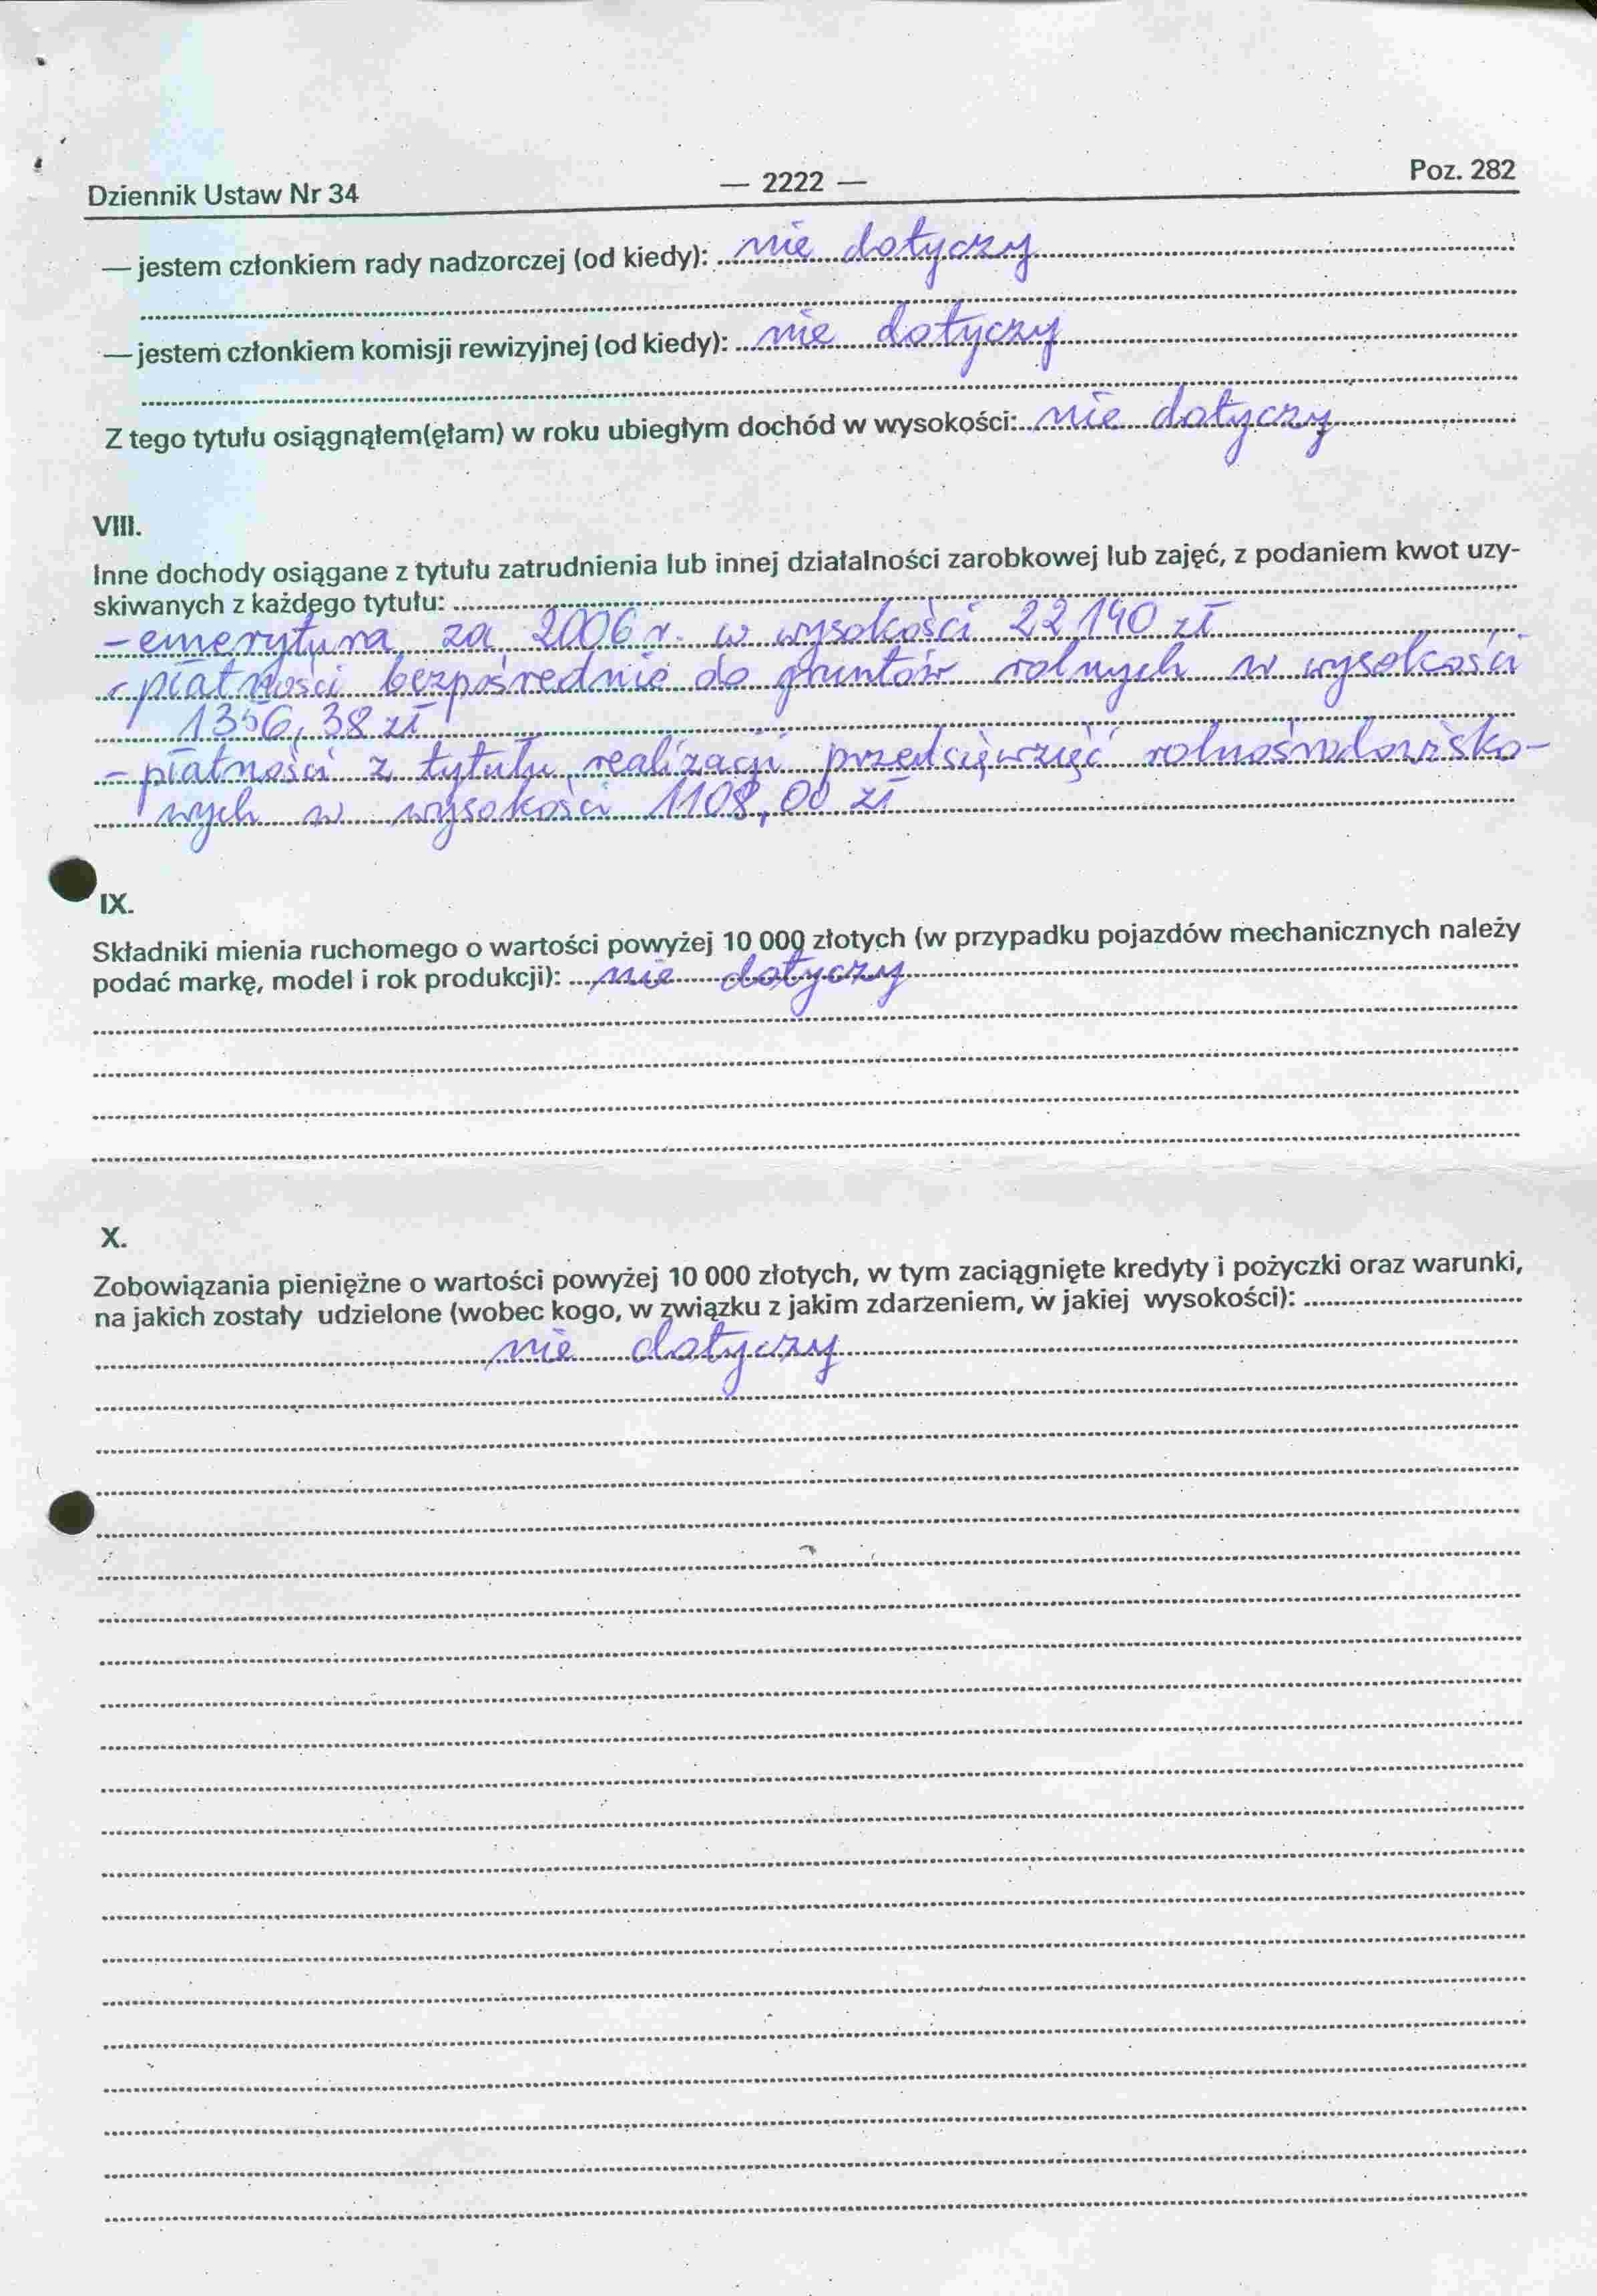 Dziennik Ustaw Nr 34 — 2222 — Poz. 282
— jestem członkiem rady nadzorczej (od kiedy): nie dotyczy
— jestem członkiem komisji rewizyjnej (od kiedy): nie dotyczy
Z tego tytułu osiągnąłem(ęłam) w roku ubiegłym dochód w wysokości: nie dotyczy
VIII.
Inne dochody osiągane z tytułu zatrudnienia lub innej działalności zarobkowej lub zajęć, z podaniem kwot uzy-
skiwanych z każdego tytułu:
- emerytura za 2006 r. w wysokości 22 140 zł
- płatności bezpośrednie do gruntów rolnych w wysokości
1356,38 zł
- płatności z tytułu realizacji przedsięwzięć rolnośrodowisko-
wych w wysokości 1108,00 zł
IX.
Składniki mienia ruchomego o wartości powyżej 10 000 złotych (w przypadku pojazdów mechanicznych należy
podać markę, model i rok produkcji): nie dotyczy
X.
Zobowiązania pieniężne o wartości powyżej 10 000 złotych, w tym zaciągnięte kredyty i pożyczki oraz warunki,
na jakich zostały udzielone (wobec kogo, w związku z jakim zdarzeniem, w jakiej wysokości):
nie dotyczy